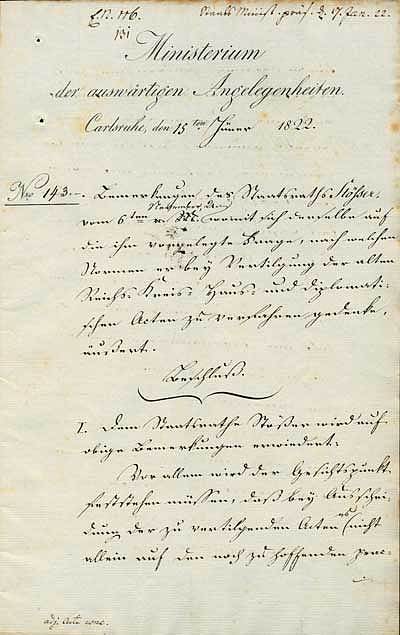 E.N. 116. Staats Minist. präs. d. 17 Jan. 22.
131
Ministerium
der auswärtigen Angelegenheiten.
Carlsruhe, den 15ten Jäner 1822.
No 143. Bemerkungen des Staatsraths Stößer,
vom 6ten v. M. womit sich derselbe auf
die ihm vorgelegte Frage, nach welchen
Normen er bey Vertilgung der alten
Reichs- Kreis- Haus- und diplomati-
schen Acten zu verfahren gedenke,
äußert.
Beschluß.
I. Dem Staatsrathe Stößer wird auf
obige Bemerkungen erwiedert:
Vor allem wird der Gesichtspunkt
feststehen müssen, daß bey Ausschei-
dung der zu vertilgenden Acten es nicht
allein auf den noch zu hoffenden prac-
adj. Acta conc.